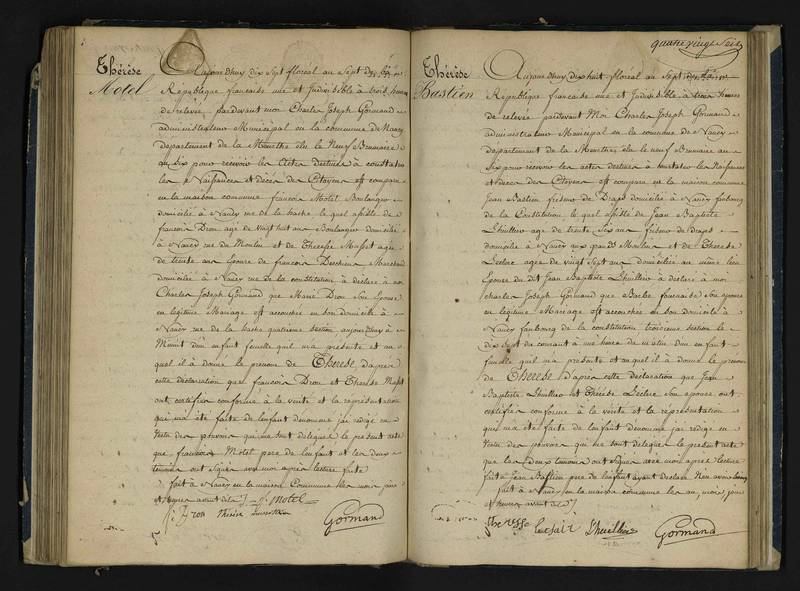 Thérèse
Motel
Aujourdhuy dix Sept floréal au Sept de la
Republique francaise une et Indivisible à trois heures
de relevée pardevant moi Charles Joseph Gormand
administrateur Municipal en la commune de Nancy
departement de la Meurthe élu le Neuf Brumaire
an Six pour recevoir les Actes destinés à constater
les Naissances et décès des Citoyens est comparu
en la maison commune françois Motel Boulanger
domicilié à Nancy rue de la hache lequel assisté de
francois Dron age de vingt huit ans Boulanger domicilié
à Nancy rue du Moulin et de Therese Masset agée
de trente ans Epouse de francois Marchand
domicilié à Nancy rue de la constitution à déclaré à moi
Charles Joseph Gormand que Marie Dron Son Epouse
en legitime Mariage est accouchée en son domicile à
Nancy rue de la hache quatrieme section aujourdhuy à
Minuit d'un enfant femelle qui m'a présenté et au
quel il à donné le prenom de Thérèse, d'après
cette declaration que francois Dron et Therese
ont certifiée conforme à la verité et la représentation
qui m'a été faite de lenfant denommé jai rédigé en
vertu des pouvoirs qui me sont délégués le présent acte
que francois Motel pere de lenfant et les deux
témoins ont signé avec moi après lecture faite
fait à Nancy en la maison Commune les mois jour
et heures avant dits f. Motel
f. Dron Thérèse
Gormand
quatre vingt Seize
Thérèse
Bastien
Aujourdhuy dix huit floreal au Sept de la
Republique francaise une et Indivisible à trois heures
de relevée pardevant Moi Charles Joseph Gormand
administrateur Municipal en la commune de Nancy
departement de la Meurthe élu le neuf Brumaire an
Six pour recevoir les actes destinés à constater les Naissances
et décès des Citoyens est comparu en la maison commune
Jean Bastien friseur de Draps domicilié à Nancy faubourg
de la Constitution le quel assisté de Jean Baptiste
Lhuillier age de trente Six ans friseur de draps
domicilié à Nancy aux grands Moulins et de Therese
Leclerc agée de vingt Sept ans domiciliée au même lieu
Epouse du dit Jean Baptiste Lhuillier à déclaré à moi
charles Joseph Gormand que Barbe Son epouse
en légitime Mariage est accouchée en son domicile à
Nancy faubourg de la constitution troisieme section le
dix Sept du courant à une heure du matin d'un enfant
femelle quil m'a présenté et auquel il à donné le prenom
de Therese d'après cette declaration que Jean
Baptiste Lhuillier et Thérèse Leclerc Son epouse ont
certifiée conforme à la verité et la représentation
qui m'a été faite de lenfant denommé jai rédigé en
vertu des pouvoirs qui me sont délégués le présent acte
que les deux temoins ont signé avec moi après lecture
faite Jean Bastien pere de lenfant ayant declaré
fait à Nancy en la maison commune les an, mois, jour
et heures avant dits
Lhuillier Gormand